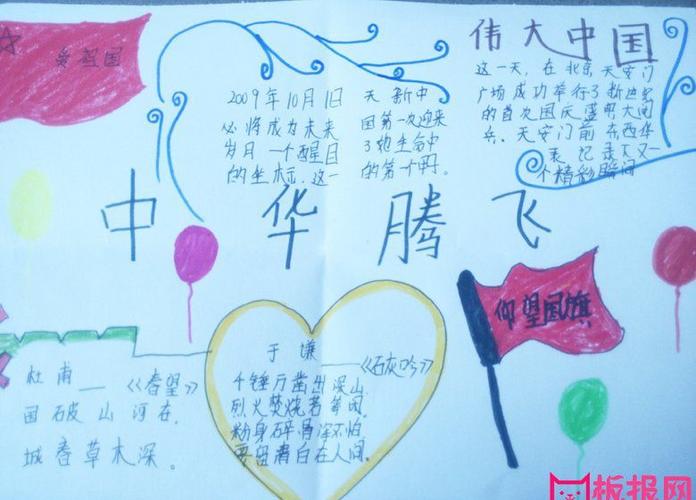 爱祖国
伟大中国
2009年10月1日
必将成为未来
岁月一个醒目
的坐标.这一
天新中
国第一次迎来
了她生命中
的第一个甲.
这一天，在北京天安门
广场成功举行了新世纪
的首次国庆盛明大阅
兵。天安门前东西华
表记录下又一
个精彩瞬间
中华腾飞
仰望国旗
杜甫——《春望》
国破山河在.
城春草木深。
于谦——《石灰吟》
千锤万凿出深山.
烈火焚烧若等闲.
粉身碎骨浑不怕.
要留清白在人间.
板报网